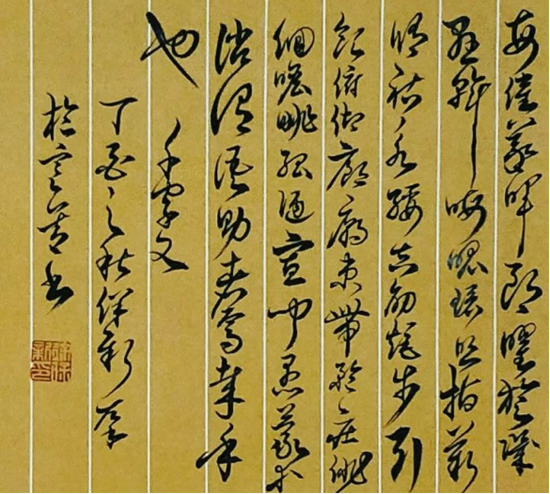 每催羲暉朗曜璇璣
懸斡晦魄環照指薪
修祜永綏吉劭矩步引
領俯仰廊廟束帶矜莊徘
徊瞻眺孤陋寡聞愚蒙等
誚謂語助者焉哉乎
也 千字文
丁酉之秋
於书